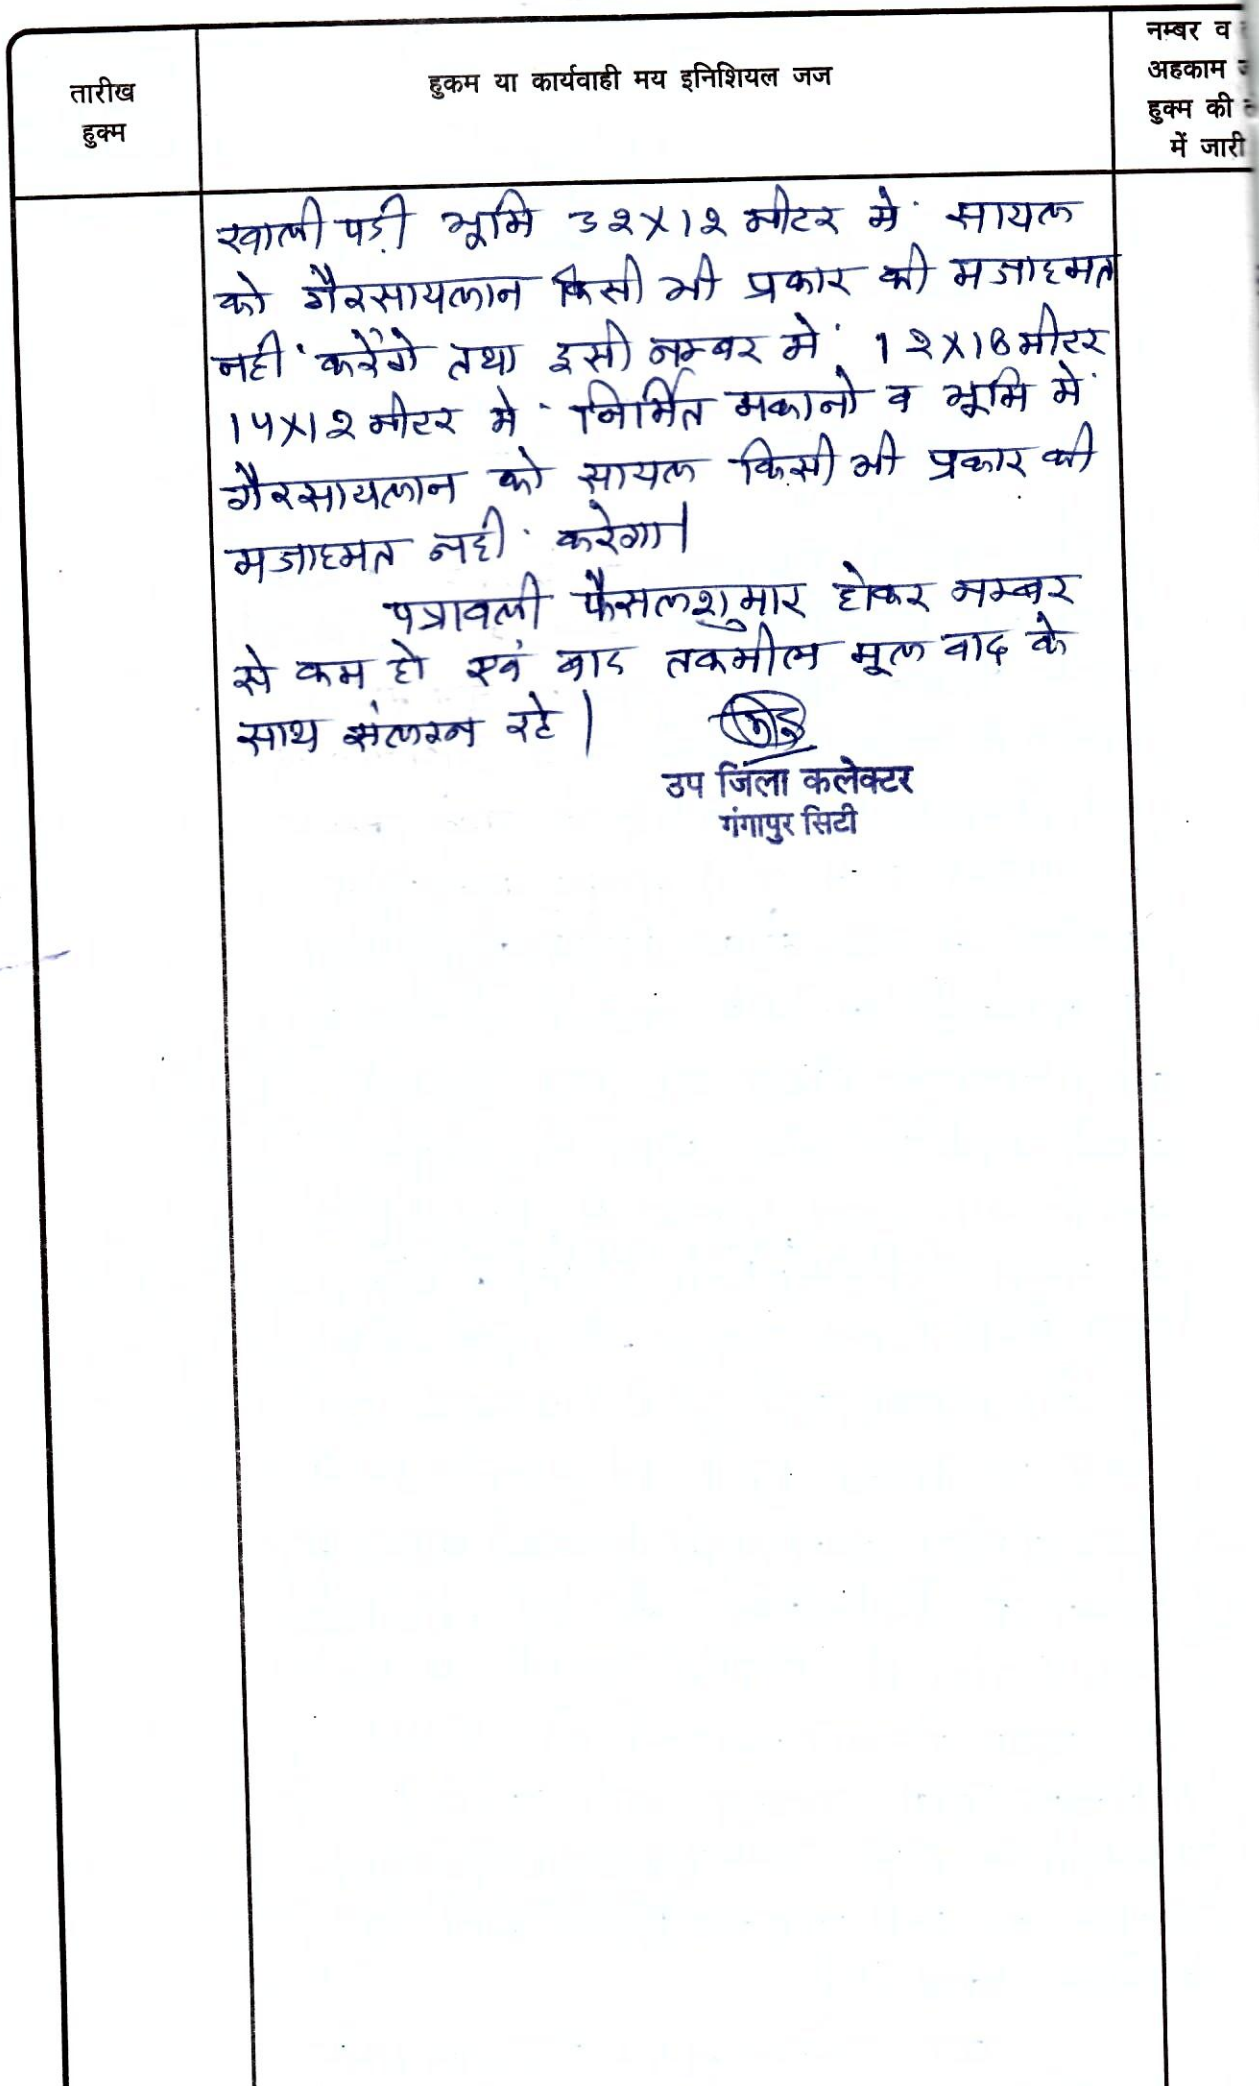 तारीख
हुक्म
हुकम या कार्यवाही मय इनिशियल जज
नम्बर व
अहकाम
हुक्म की
में जारी
खाली पडी भूमि 32X12 मीटर मे सायल
को गैरसायलान किसी भी प्रकार की मजाहमत
नही करेंगे तथा इसी नम्बर मे 12X18 मीटर
14X12 मीटर मे निर्मित मकानो व भूमि मे
गैरसायलान को सायल किसी भी प्रकार की
मजाहमत नही करेगा।
पत्रावली फैसलशुमार होकर नम्बर
से कम हो एवं बाद तकमील मूल वाद के
साथ संलग्न रहे।
उप जिला कलेक्टर
गंगापुर सिटी